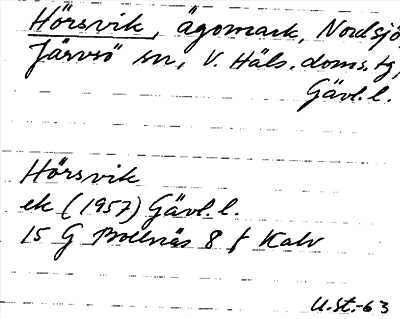 Hörsvik, ägomark, Nordsjö,
Järvsö sn, V. Häls. doms. tg,
Gävl. l.
Hörsvik
ek (1957) Gävl. l.
15 G Bollnäs 8 f Kalv
U.St.-63